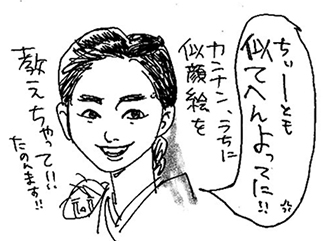 ちぃーとも
似てへんよってに!!
カンナン、うちに
似顔絵を
教えちゃってぃぃ
たのんます!!